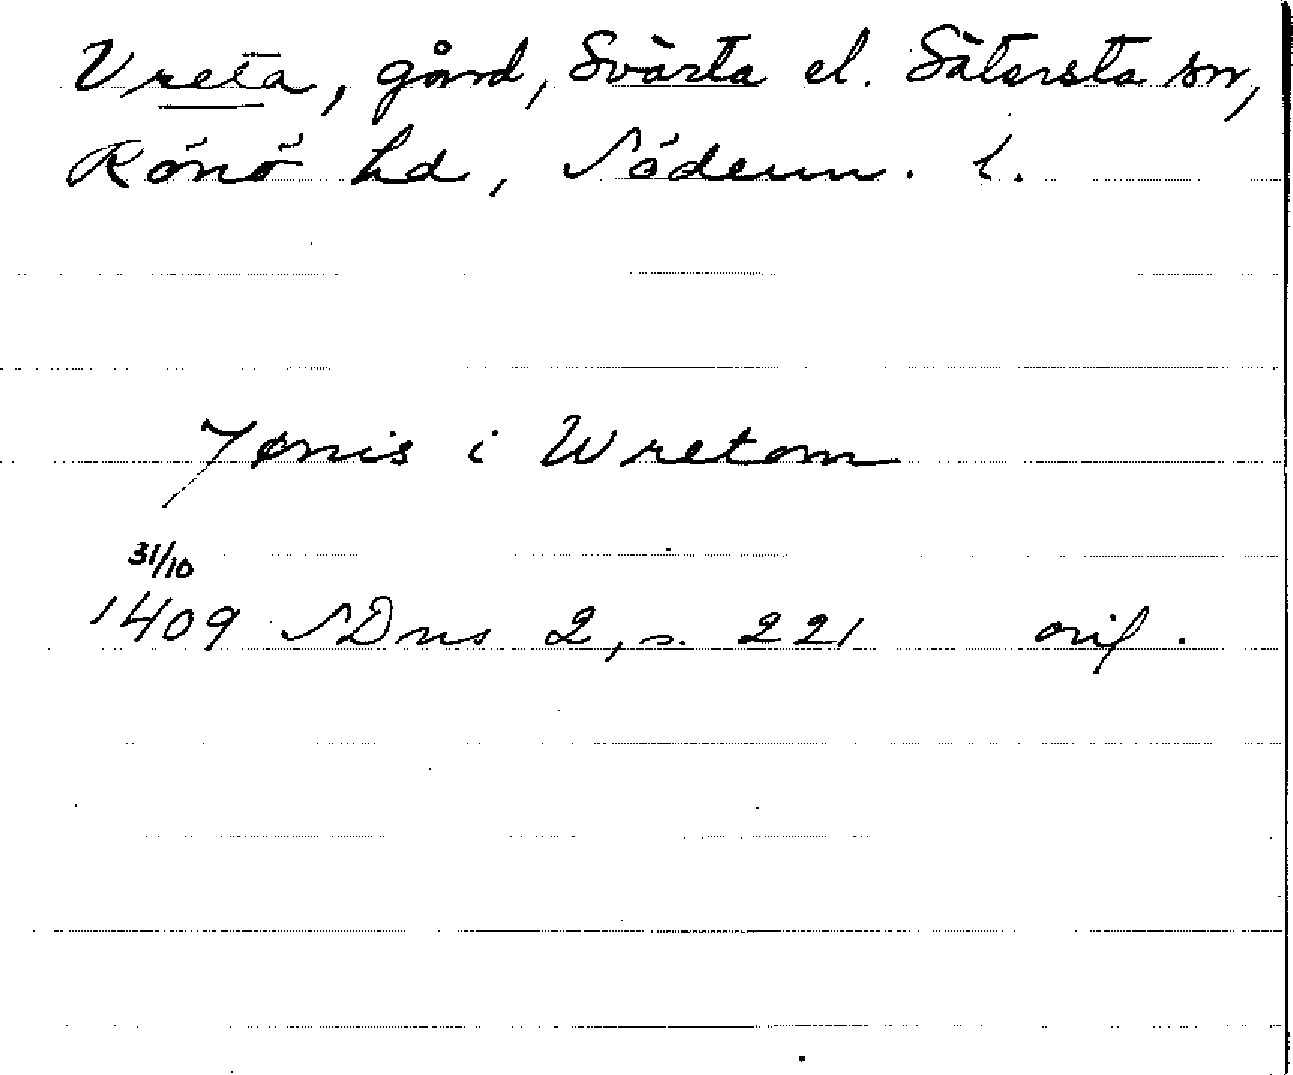 Vreta, gård, Svärta el. Sätersta sn,
Rönö hd, Söderm. l.
Jønis i Wretom
31/10
1409 SDns 2, s. 221 orig.